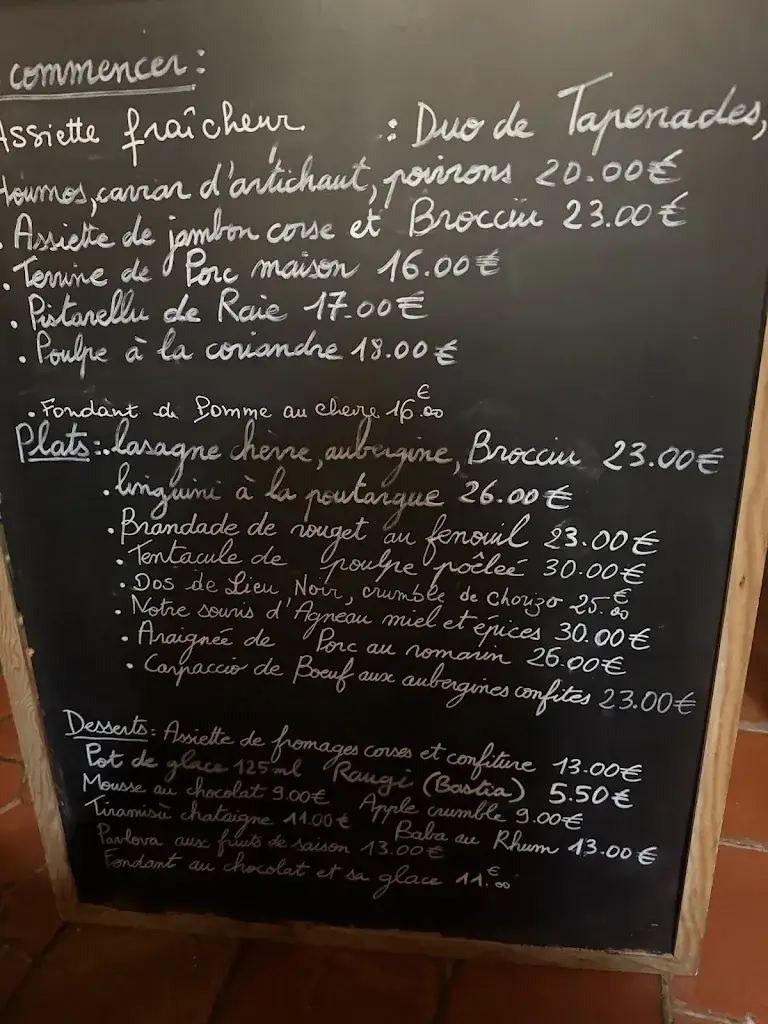 commencer:
Assiette fraîcheur : Duo de Tapenades,
Houmos, caviar d'artichaut, poivrons 20.00€
. Assiette de jambon corse et Brocciu 23.00€
. Terrine de Porc maison 16.00€
. Pistarellu de Raie 17.00€
. Poulpe à la coriandre 18.00€
. Fondant de Pomme au chevre 16€.00
Plats: . lasagne chèvre, aubergine, Brocciu 23.00€
. linguini à la poutargue 26.00€
. Brandade de rouget au fenouil 23.00€
. Tentacule de poulpe pôêleé 30.00€
. Dos de Lieu Noir, crumble de chorizo 25€.00
. Notre souris d'Agneau miel et épices 30.00€
. Araignée de Porc au romarin 26.00€
. Carpaccio de Boeuf aux aubergines confites 23.00€
Desserts: Assiette de fromages corses et confiture 13.00€
Pot de glace 125ml Raugi (Bastia) 5.50€
Mousse au chocolat 9.00€ Apple crumble 9.00€
Tiramisu chataigne 11.00€ Baba au Rhum 13.00€
Pavlova aux fruits de saison 13.00€
Fondant au chocolat et sa glace 11€.00